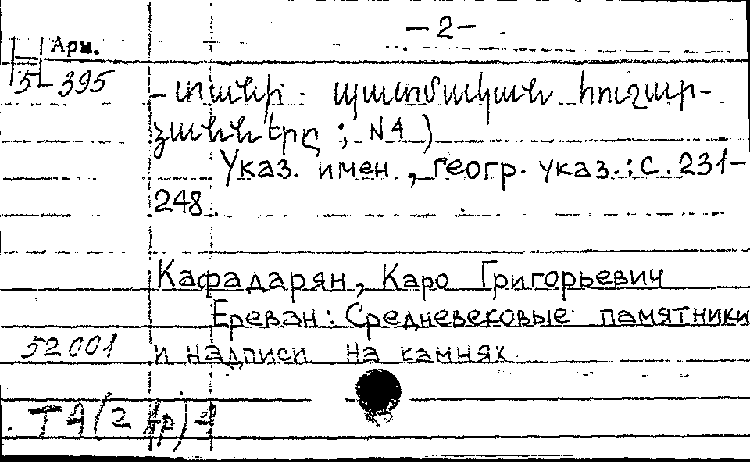 – 2 –
Арм.
5–395
–տանի պատմական հուշար-
ձանները ; N4 )
Указ. имен., геогр. указ.: с. 231–
248
Кафадарян, Каро Григорьевич
Ереван: Средневековые памятники
52001 и надписи на камнях